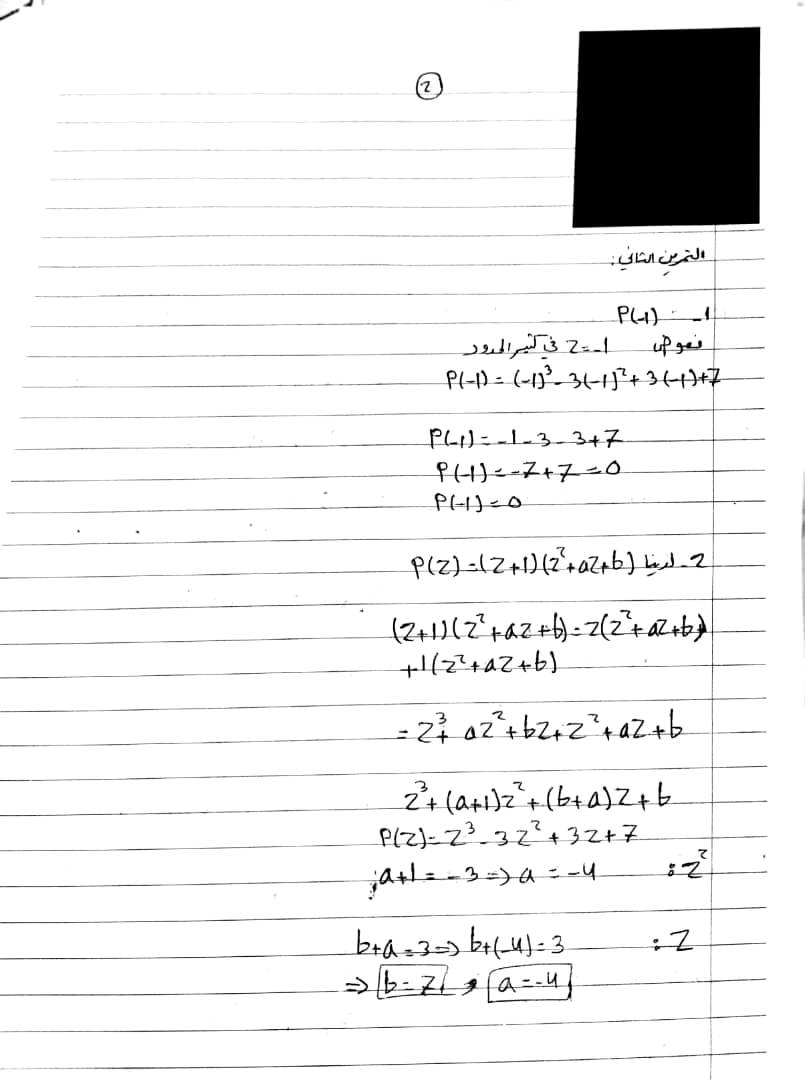 2
التمرين الثاني:
1- P(-1) :
نعوض z=-1 في كثير الحدود
P(-1) = (-1)³ - 3(-1)² + 3(-1) + 7
P(-1) = -1 - 3 - 3 + 7
P(-1) = -7 + 7 = 0
P(-1) = 0
2- لدينا P(z) = (z+1)(z²+az+b)
(z+1)(z²+az+b) = z(z²+az+b)
+1(z²+az+b)
= z³ + az² + bz + z² + az + b
z³ + (a+1)z² + (b+a)z + b
P(z) = z³ - 3z² + 3z + 7
z² : a+1 = -3 => a = -4
z : b+a = 3 => b+(-4) = 3
=> b = 7 , a = -4